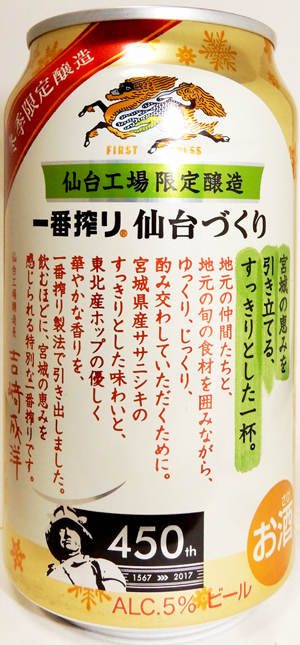 冬季限定醸造
FIRST PRESS
仙台工場限定醸造
一番搾り® 仙台づくり
宮城の恵みを
引き立てる、
すっきりとした一杯。
地元の仲間たちと、
地元の旬の食材を囲みながら、
ゆっくり、じっくり、
酌み交わしていただくために。
宮城県産ササニシキの
すっきりとした味わいと、
東北産ホップの優しく
華やかな香りを、
一番搾り製法で引き出しました。
飲むほどに、宮城の恵みを
感じられる特別な一番搾りです。
仙台工場醸造長
450th
1567 >>> 2017
お酒
ALC.5% ビール